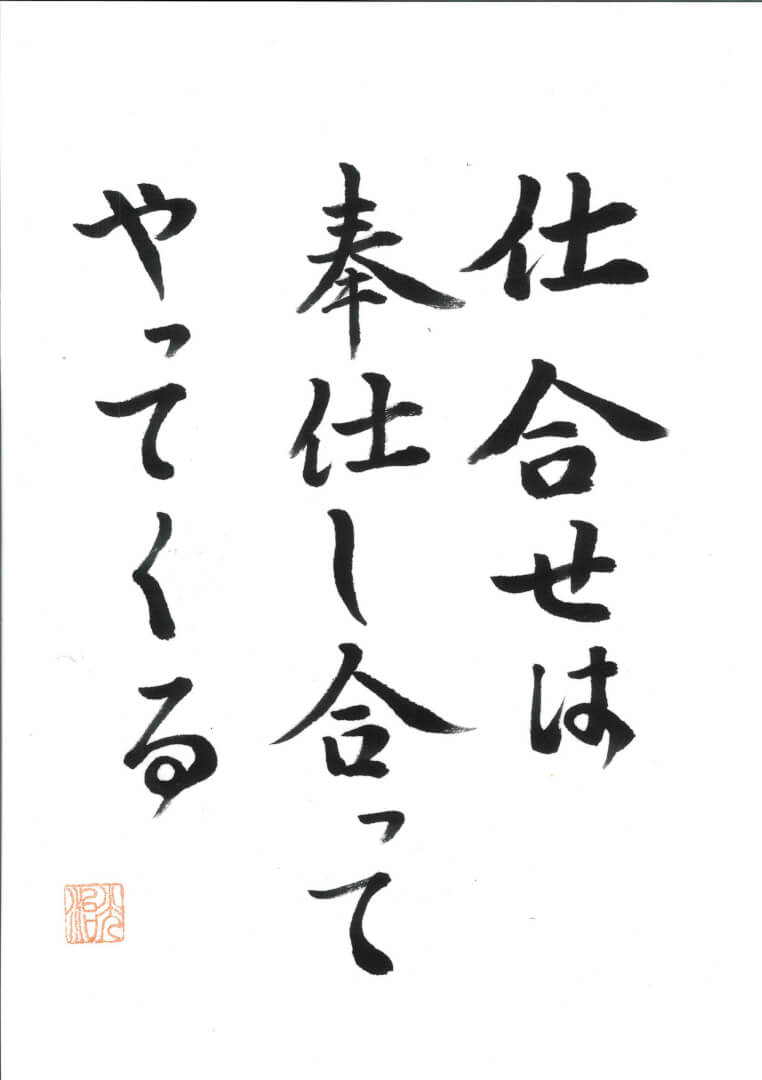 仕合せは
奉仕し合って
やってくる